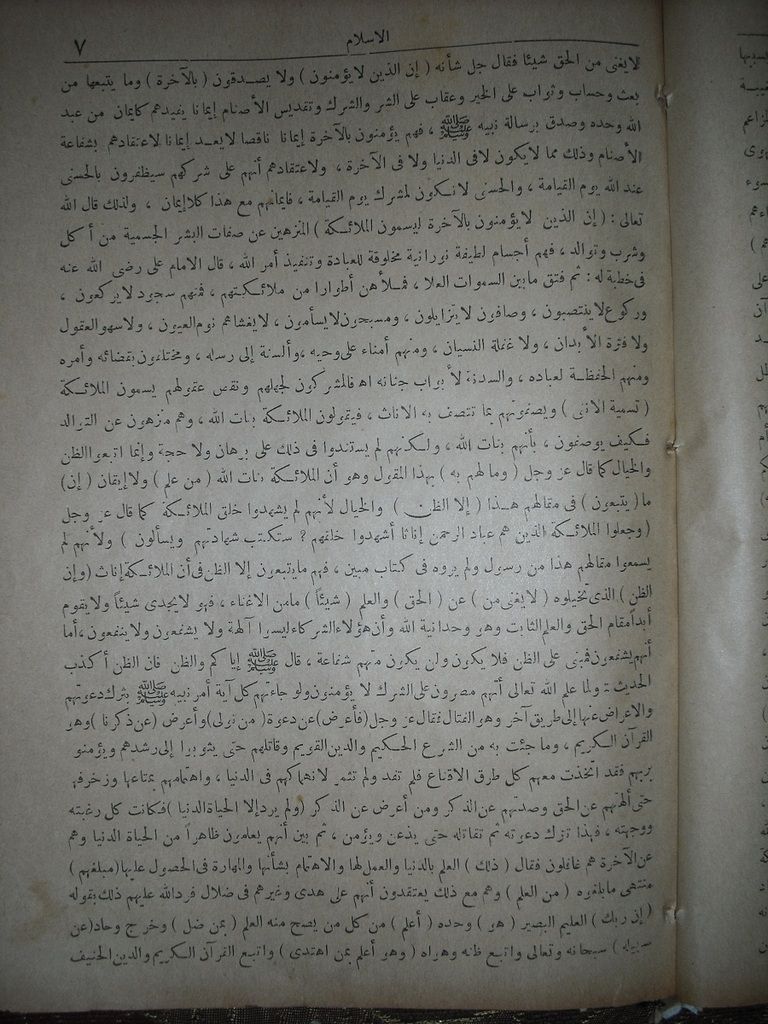 الاسلام
٧
لايغنى من الحق شيئا فقال جل شأنه ( إن الذين لايؤمنون ) ولا يصدقون ( بالآخرة ) وما يتبعها من
بعث وحساب وثواب على الخير وعقاب على الشر والشرك وتقديس الأصنام إيمانا يفيدهم كايمان من عبد
الله وحده وصدق برسالة نبيه ﷺ ، فهم يؤمنون بالآخرة إيمانا ناقصا لايعد إيمانا لاعتقادهم بشفاعة
الأصنام وذلك مما لايكون لافى الدنيا ولا فى الآخرة ، ولاعتقادهم أنهم على شركهم سيظفرون بالحسنى
عند الله يوم القيامة ، والحسنى لاتكون لمشرك يوم القيامة ، فايمانهم مع هذا كلاإيمان ، ولذلك قال الله
تعالى : ( إن الذين لايؤمنون بالآخرة ليسمون الملائكة ) المنزهين عن صفات البشر الجسمية من أكل
وشرب وتوالد ، فهم أجسام لطيفة نورانية مخلوقة للعبادة وتنفيذ أمر الله ، قال الامام على رضى الله عنه
فى خطبة له : ثم فتق مابين السموات العلا ، فملأهن أطوارا من ملائكتهم ، فمنهم سجود لايركعون ،
وركوع لاينتصبون ، وصافون لايتزايلون ، ومسبحون لايسأمون ، لايغشاهم نوم العيون ، ولاسهو العقول
ولا فترة الأبدان ، ولا غفلة النسيان ، ومنهم أمناء على وحيه ، وألسنة إلى رسله ، ومختلفون بقضائه وأمره
ومنهم الحفظة لعباده ، والسدنة لأبواب جنانه اه فالمشركون لجهلهم ونقص عقولهم يسمون الملائكة
( تسمية الانثى ) ويصفونهم بما تتصف به الاناث ، فيقولون الملائكة بنات الله ، وهم منزهون عن التوالد
فكيف يوصفون ، بأنهم بنات الله ، ولكنهم لم يستندوا فى ذلك على برهان ولا حجة وإنما اتبعوا الظن
والخيال كما قال عز وجل ( وما لهم به ) بهذا المقول وهو أن الملائكة بنات الله ( من علم ) ولاإيقان ( إن )
ما ( يتبعون ) فى مقالهم هذا ( إلا الظن ) والخيال لأنهم لم يشهدوا خلق الملائكة كما قال عز وجل
( وجعلوا الملائكة الذين هم عباد الرحمن إناثا أشهدوا خلقهم ؟ ستكتب شهادتهم ويسألون ) ولأنهم لم
يسمعوا مقالهم هذا من رسول ولم يروه فى كتاب مبين ، فهم مايتبعون إلا الظن فى أن الملائكة إناث ( وإن
الظن ) الذى تخيلوه ( لايغنى من ) عن ( الحق ) والعلم ( شيئاً ) مامن الاغناء ، فهو لايجدى شيئاً ولايقوم
أبداً مقام الحق والعلم الثابت وهو وحدانية الله وأن هؤلاء الشركاء ليسوا آلهة ولا يشفعون ولاينفعون ، أما
أنهم يشفعون فمبنى على الظن فلا يكون ولن يكون منهم شفاعة ، قال ﷺ إياكم والظن فان الظن أكذب
الحديث : ولما علم الله تعالى أنهم مصرون على الشرك لا يؤمنون ولو جاءتهم كل آية أمر نبيه ﷺ بترك دعوتهم
والاعراض عنها إلى طريق آخر وهو القتال فقال عز وجل ( فأعرض ) عن دعوة ( من تولى ) وأعرض ( عن ذكرنا ) وهو
القرآن الكريم ، وما جئت به من الشرع الحكيم والدين القويم وقاتلهم حتى يثوبوا إلى رشدهم ويؤمنوا
بربهم فقد اتخذت معهم كل طرق الاقناع فلم تفد ولم تثمر لانهماكهم فى الدنيا ، واهتمامهم بمتاعها وزخرفها
حتى ألهتهم عن الحق وصدتهم عن الذكر ومن أعرض عن الذكر ( ولم يرد إلا الحياة الدنيا ) فكانت كل رغبته
ووجهته ، فهذا تترك دعوته ثم تقاتله حتى يذعن ويؤمن ، ثم بين أنهم يعلمون ظاهراً من الحياة الدنيا وهم
عن الآخرة هم غافلون فقال ( ذلك ) العلم بالدنيا والعمل لها والاهتمام بشأنها والمهارة فى الحصول عليها ( مبلغهم )
منتهى مابلغوه ( من العلم ) وهم مع ذلك يعتقدون أنهم على هدى وغيرهم فى ضلال فرد الله عليهم ذلك بقوله
( إن ربك ) العليم البصير ( هو ) وحده ( أعلم ) من كل من يصح منه العلم ( بمن ضل ) وخرج وحاد ( عن
سبيله ) سبحانه وتعالى واتبع ظنه وهواه ( وهو أعلم بمن اهتدى ) واتبع القرآن الكريم والدين الحنيف